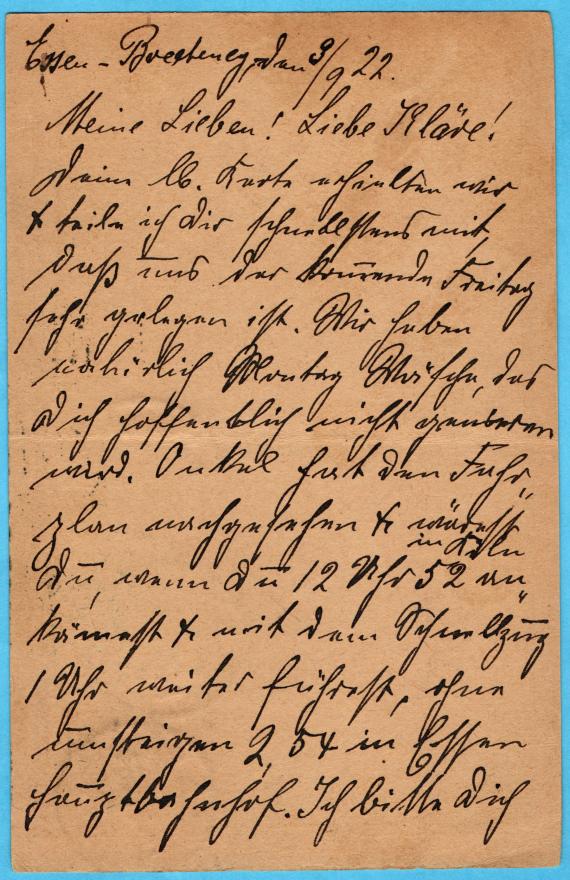 Essen-Bredeney, den 9/9 22.
Meine Lieben! Liebe Kläre!
Deine lb. Karte erhielten wir
& teile ich Dir schnellstens mit,
daß uns der kommende Freitag
sehr gelegen ist. Wir haben
natürlich Montag Wäsche, das
Dich hoffentlich nicht genieren
wird. Onkel hat den Fahr„
plan nachgesehen & wärest
in Köln
Du, wenn Du 12 Uhr 52 an„
kämest & mit dem Schnellzug
1 Uhr weiter führest, ohne
umsteigen 2,54 in Essen
Hauptbahnhof. Ich bitte Dich